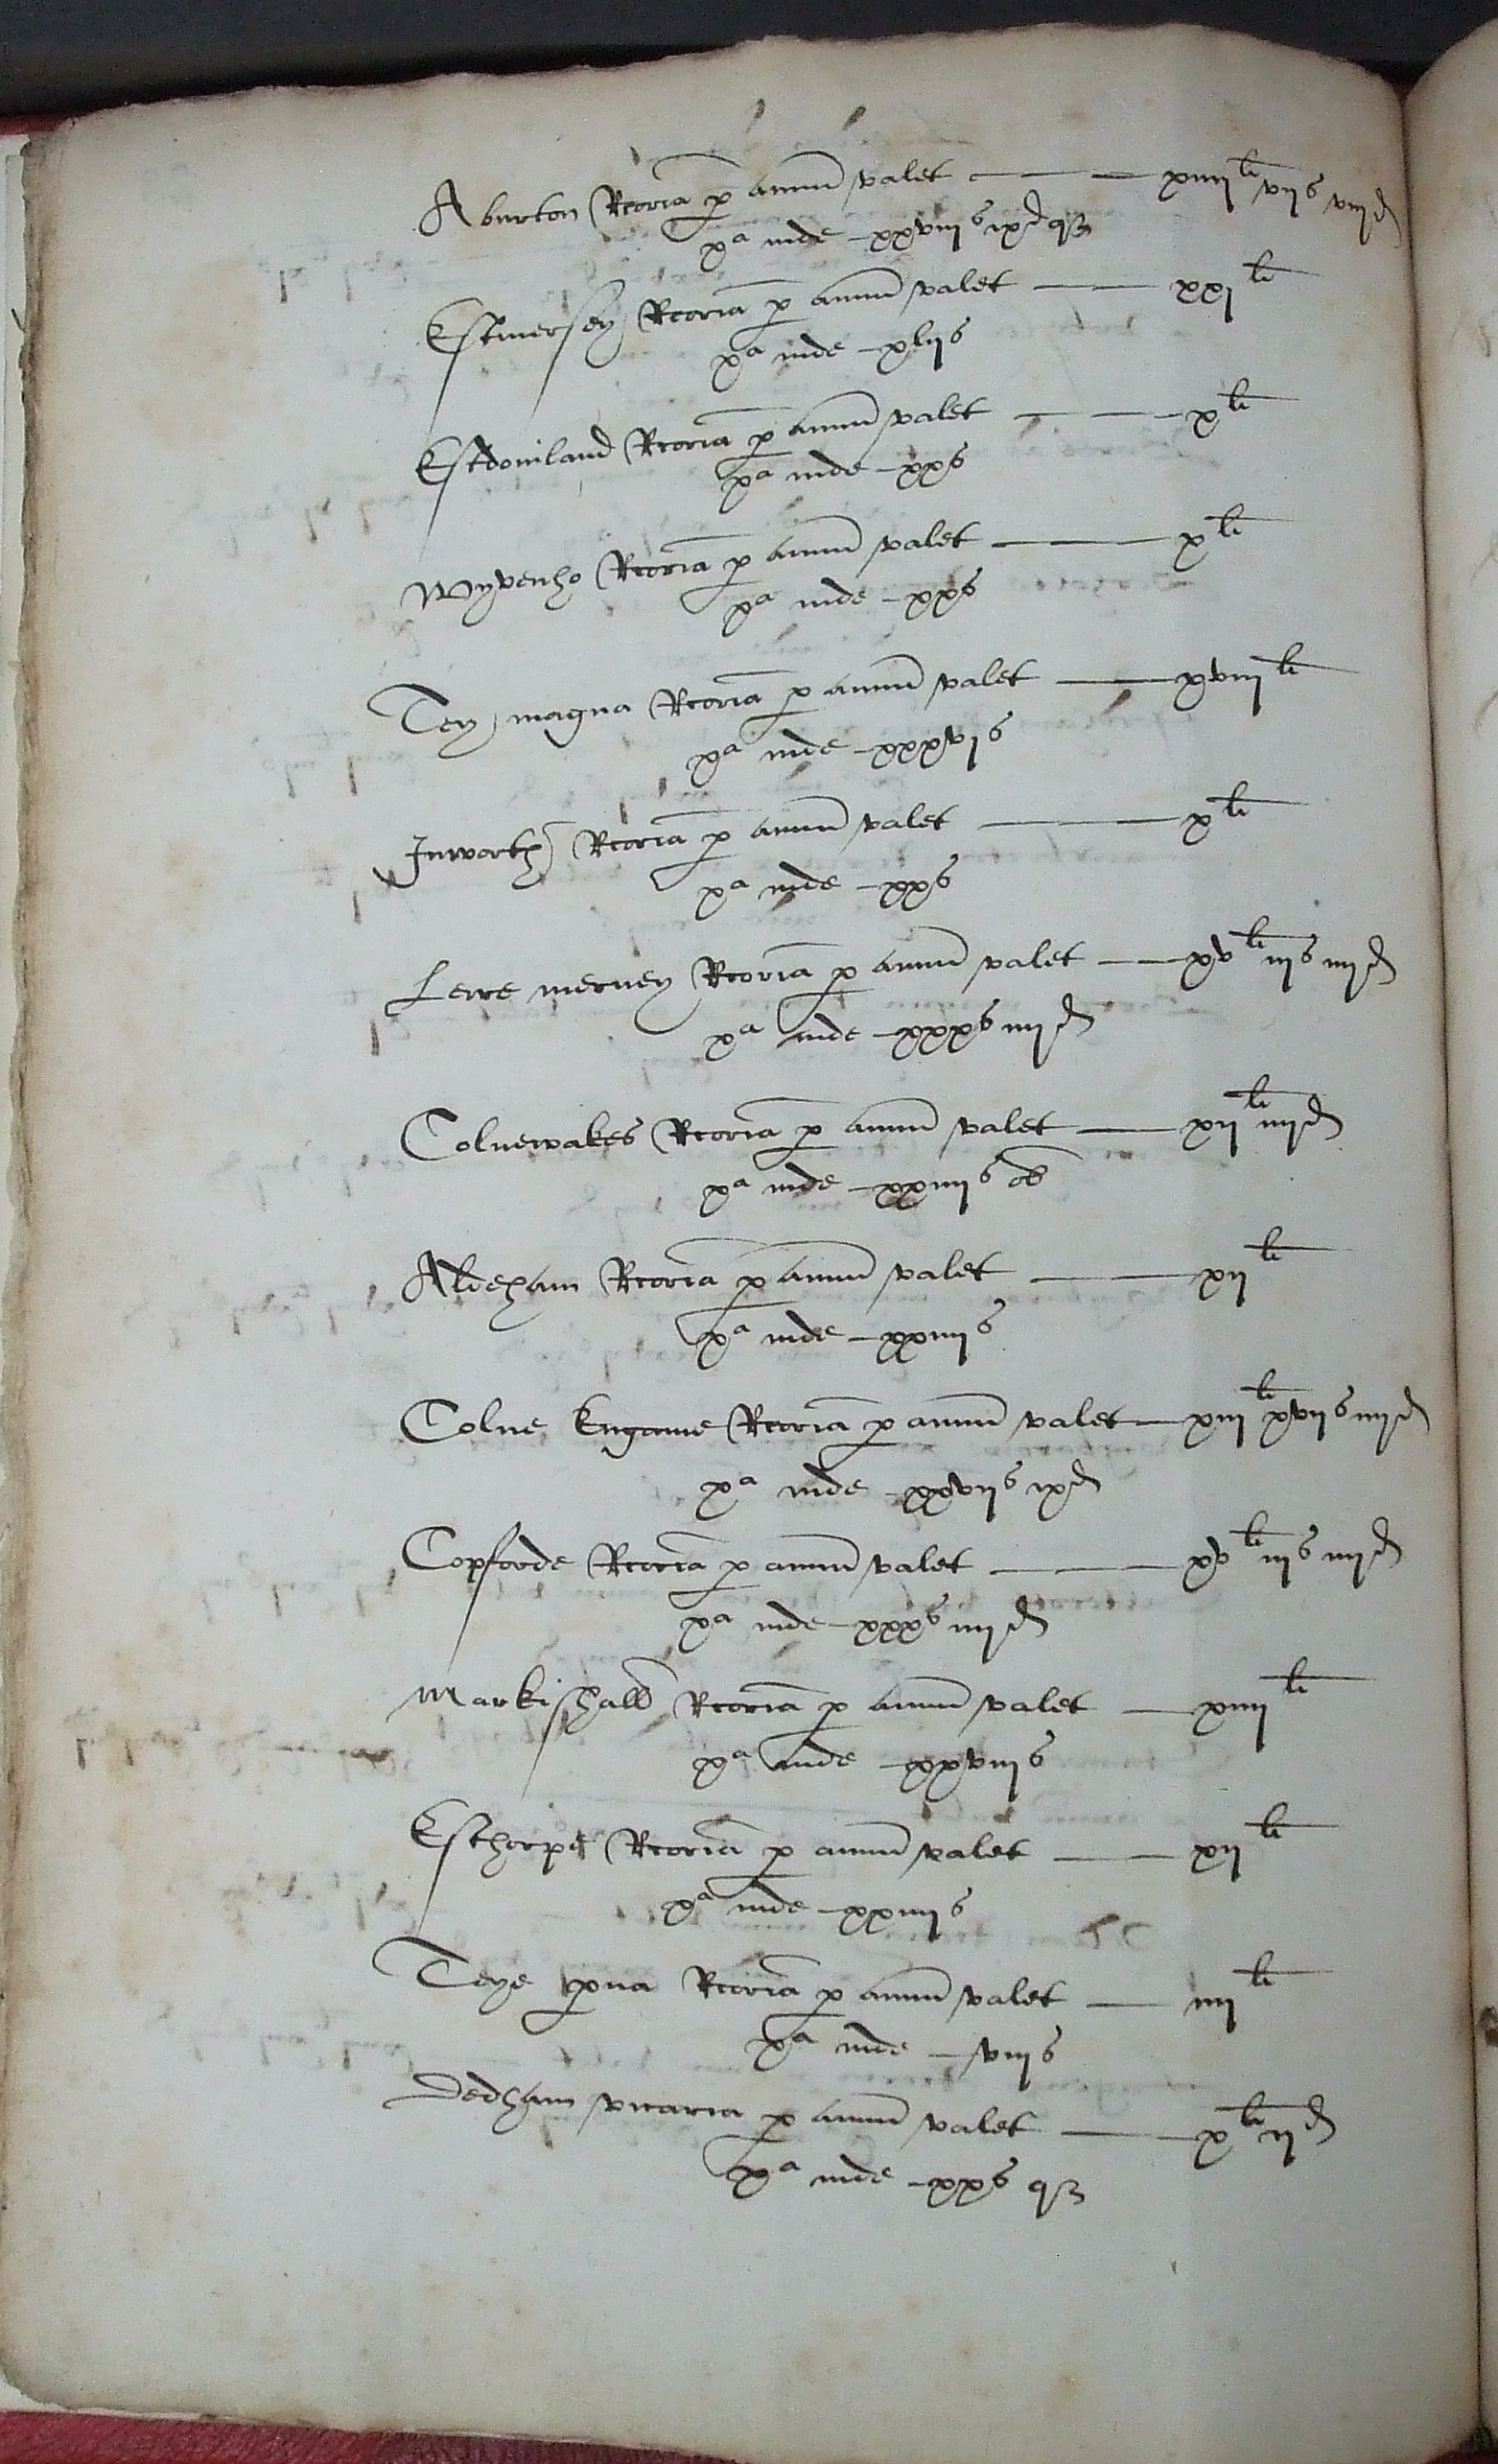 Aburton Rcoria p annu valet — — xiiij li vij s viij d
xa inde – xxviij s ix d qz
Estmersey Rcoria p annu valet — xxj li
xa inde – xlij s
Estdoniland Rcoria p annu valet — — x li
xa inde – xx s
Wyvenho Rcoria p annu valet — x li
xa inde – xx s
Tey magna Rcoria p annu valet — xviij li
xa inde – xxxvj s
Inworth Rcoria p annu valet — x li
xa inde – xx s
Leire merney Rcoria p annu valet — xv li iij s iiij d
xa inde – xxx s iiij d
Colnewakes Rcoria p annu valet — xij li iiij d
xa inde – xxiiij s ob
Aldeham Rcoria p annu valet — xij li
xa inde – xxiiij s
Colne Engaine Rcoria p annu valet — xiij li xvij s iiij d
xa inde – xxvij s ix d
Copforde Rcoria p annu valet — xv li iij s iiij d
xa inde – xxx s iiij d
Markishall Rcoria p annu valet — xiiij li
xa inde – xxviij s
Esthorpe Rcoria p annu valet — xij li
xa inde – xxiiij s
Teye pva Rcoria p annu valet — iiij li
xa inde – viij s
Dedham vicaria p annu valet — x li ij d
xa inde – xx s qz